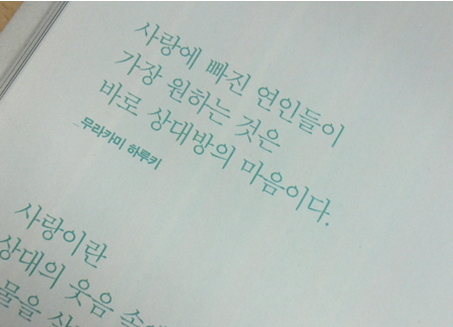 사랑에 빠진 연인들이
가장 원하는 것은
바로 상대방의 마음이다.
무라카미 하루키
사랑이란
상대의 웃음 속에
물을